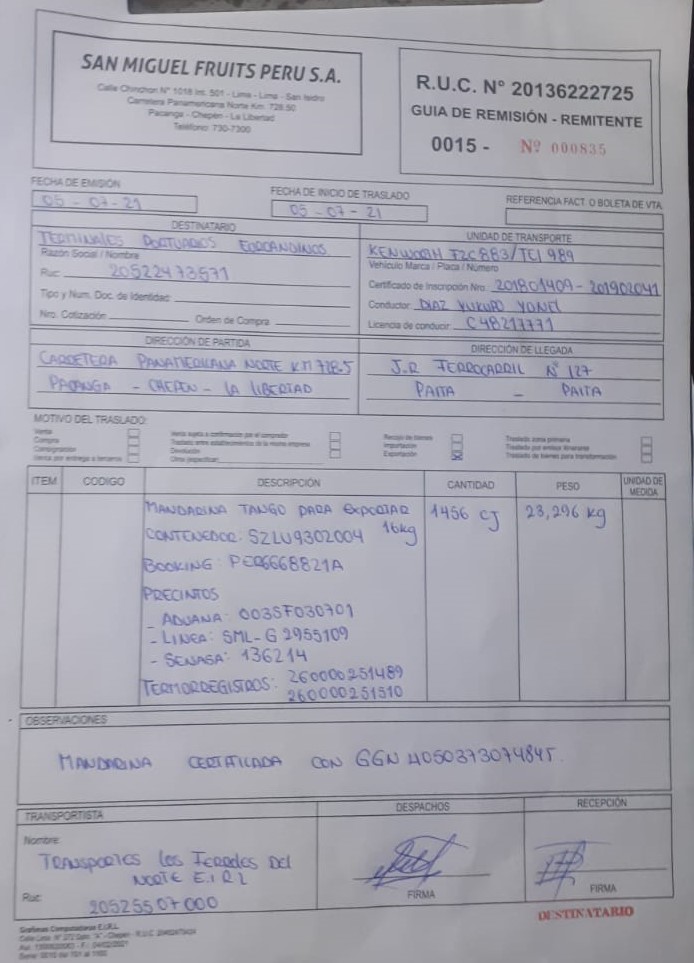 SAN MIGUEL FRUITS PERU S.A.
Calle Chinchon N° 1018 Int. 501 - Lima - Lima - San Isidro
Carretera Panamericana Norte Km. 728.50
Pacanga - Chepén - La Libertad
Teléfono: 730-7300
R.U.C. N° 20136222725
GUIA DE REMISIÓN - REMITENTE
0015 - Nº 000835
FECHA DE EMISIÓN
05 - 07 - 21
FECHA DE INICIO DE TRASLADO
05 - 07 - 21
REFERENCIA FACT. O BOLETA DE VTA.
DESTINATARIO
TERMINALES PORTUARIOS EUROANDINOS
Razón Social / Nombre
Ruc: 20522473571
Tipo y Num. Doc. de Identidad:
Nro. Cotización: Orden de Compra:
UNIDAD DE TRANSPORTE
KENWORTH T2C883/TCI 989
Vehículo Marca / Placa / Número
Certificado de Inscripción Nro. 201801409 - 201902041
Conductor: DIAZ YONEL
Licencia de conducir: C48217771
DIRECCIÓN DE PARTIDA
CARRETERA PANAMERICANA NORTE KM 728.5
PACANGA - CHEPEN - LA LIBERTAD
DIRECCIÓN DE LLEGADA
J.R FERROCARRIL N° 127
PAITA - PAITA
MOTIVO DEL TRASLADO:
Venta
Compra
Consignación
Venta por entrega a terceros
Venta sujeta a confirmación por el comprador
Traslado entre establecimientos de la misma empresa
Devolución
Otros (especificar)
Recojo de bienes
Importación
Exportación
Traslado zona primaria
Traslado por emisor itinerante
Traslado de bienes para transformación
ITEM CODIGO DESCRIPCIÓN CANTIDAD PESO UNIDAD DE MEDIDA
MANDARINA TANGO PARA EXPORTAR 1456 CJ 23,296 kg
16kg
CONTENEDOR: SZLU9302004
BOOKING: PER6668821A
PRECINTOS
- ADUANA: 003SF030701
- LINEA: SML-G 2955109
- SENASA: 136214
TERMORREGISTROS: 260000251489
260000251510
OBSERVACIONES
MANDARINA CERTIFICADA CON GGN 4050373074845.
TRANSPORTISTA
Nombre:
TRANSPORTES LOS FERODES DEL
NORTE E.I.R.L
Ruc: 20525507000
DESPACHOS
FIRMA
RECEPCIÓN
FIRMA
DESTINATARIO
Graficas Computadoras E.I.R.L.